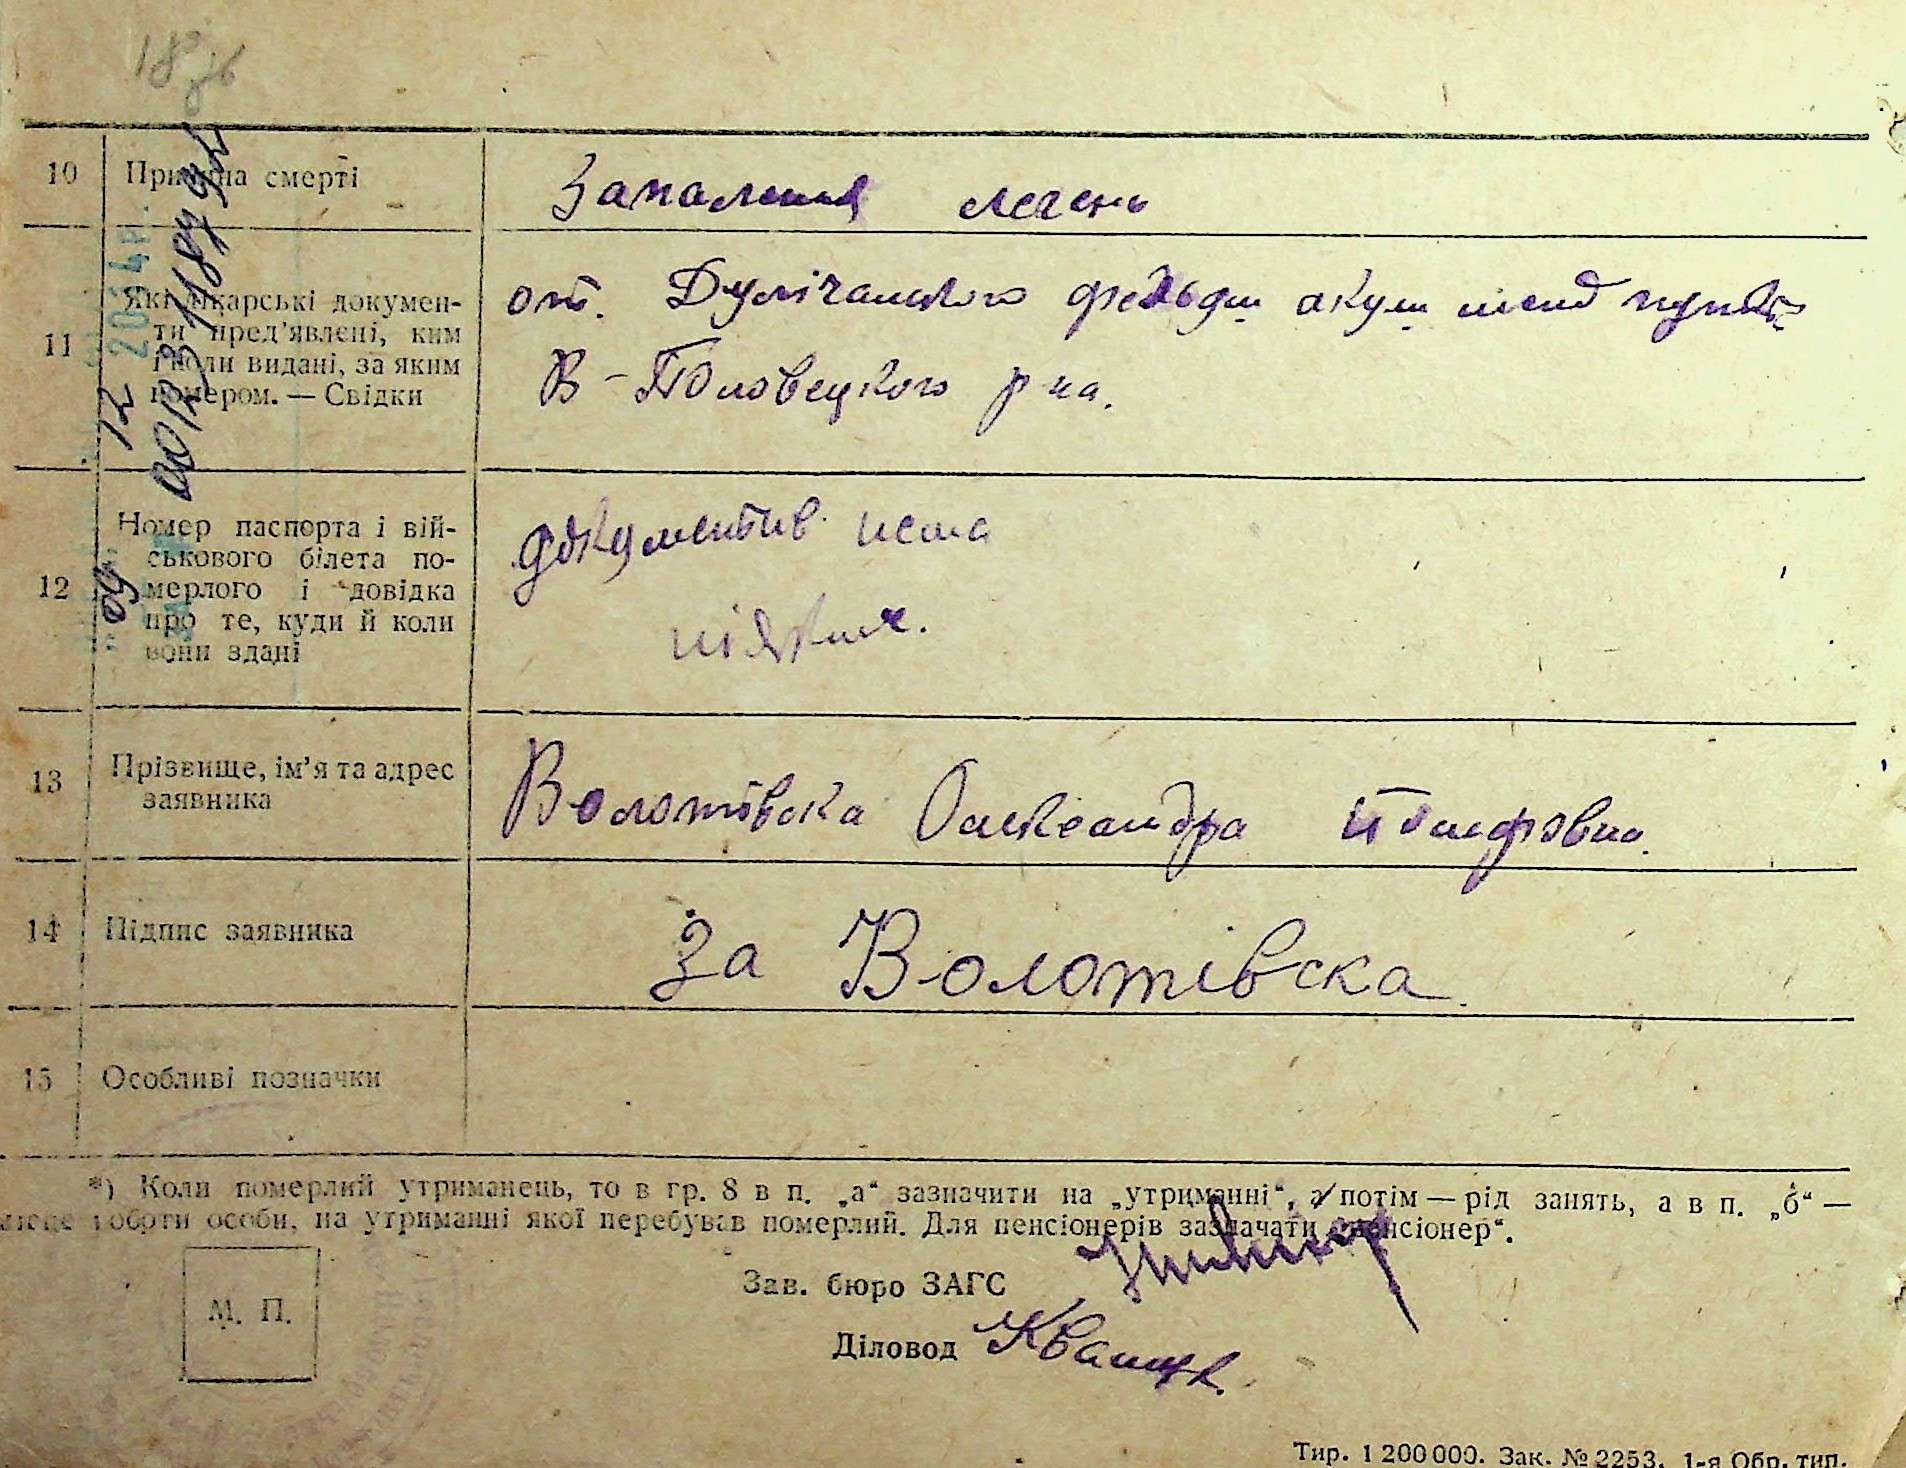 10 Причина смерті Запалення легень
11 Які лікарські докумен-
ти пред’явлені, ким
і коли видані, за яким
номером. — Свідки
от. Дулічанського фельдш акуш мед пункт
В-Половецкого р на.
12 Номер паспорта і вій-
ськового білета по-
мерлого і довідка
про те, куди й коли
вони здані
документив нема
13 Прізвище, ім’я та адрес
заявника
Волотовска Олександра
14 Підпис заявника За Волотівска
15 Особливі позначки
*) Коли померлий утриманець, то в гр. 8 в п. „а“ зазначити на „утриманні“, а потім — рід занять, а в п. „б“ —
місце роботи особи, на утриманні якої перебував померлий. Для пенсіонерів зазначати „пенсіонер“.
М. П.
Зав. бюро ЗАГС
Діловод Кващук
Тир. 1 200 000. Зак. № 2253. 1-я Обр. тип.